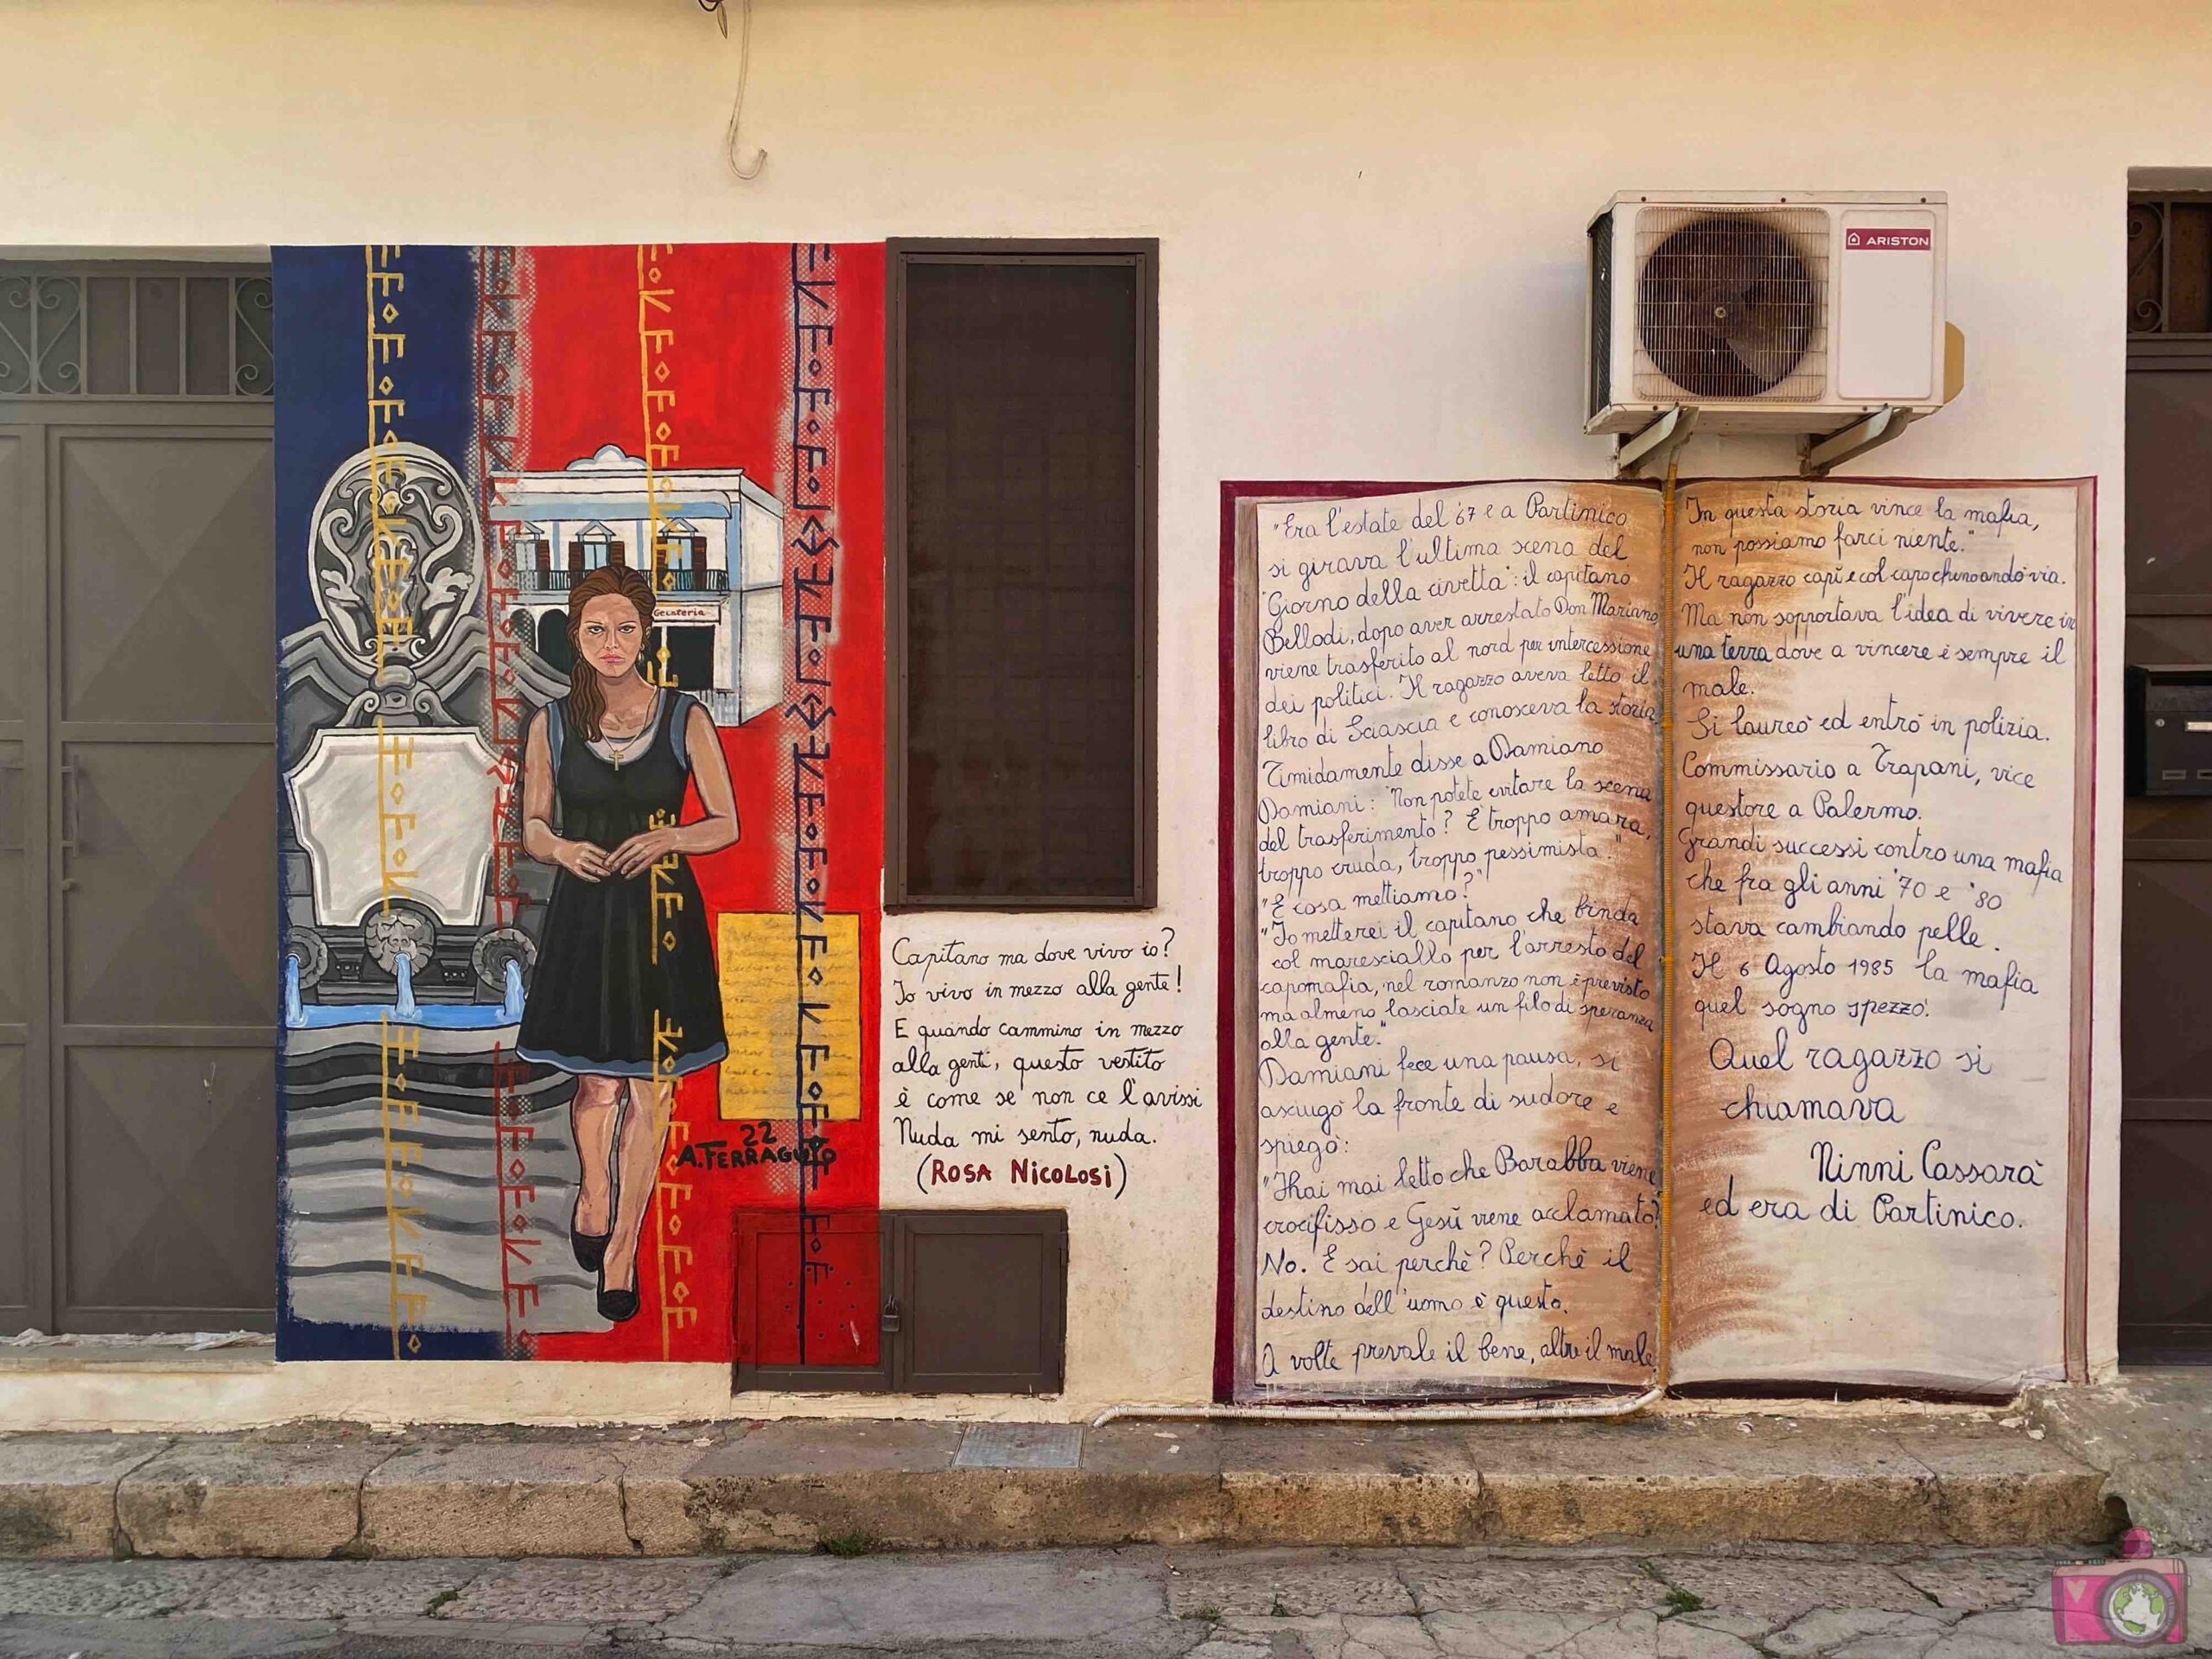 ARISTON
Gelateria
22
A. FERRAGUTO
Capitano ma dove vivo io?
Io vivo in mezzo alla gente!
E quando cammino in mezzo
alla genti, questo vestito
è come se non ce l'avissi
Nuda mi sento, nuda.
(ROSA NICOLOSI)
"Era l'estate del '67 e a Partinico
si girava l'ultima scena del
"Giorno della civetta": il capitano
Bellodi, dopo aver arrestato Don Mariano,
viene trasferito al nord per intercessione
dei politici. Il ragazzo aveva letto il
libro di Sciascia e conosceva la storia.
Timidamente disse a Damiano
Damiani: "Non potete evitare la scena
del trasferimento? È troppo amara,
troppo cruda, troppo pessimista."
"E cosa mettiamo?"
"Io metterei il capitano che brinda
col maresciallo per l'arresto del
capomafia, nel romanzo non è previsto
ma almeno lasciate un filo di speranza
alla gente."
Damiani fece una pausa, si
asciugò la fronte di sudore e
spiegò:
"Hai mai letto che Barabba viene
crocifisso e Gesù viene acclamato?
No. E sai perchè? Perchè il
destino dell'uomo è questo.
A volte prevale il bene, altre il male.
In questa storia vince la mafia,
non possiamo farci niente."
Il ragazzo capì e col capo chino andò via.
Ma non sopportava l'idea di vivere in
una terra dove a vincere è sempre il
male.
Si laureò ed entrò in polizia.
Commissario a Trapani, vice
questore a Palermo.
Grandi successi contro una mafia
che fra gli anni '70 e '80
stava cambiando pelle.
Il 6 Agosto 1985 la mafia
quel sogno spezzò.
Quel ragazzo si
chiamava
Ninni Cassarà
ed era di Partinico.